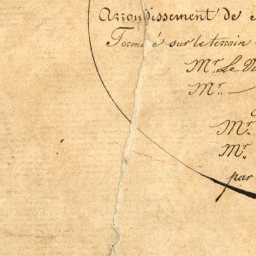 Arrondissement de
Formé sur le terrain
Mr. Le
Mr. —
Mr.
Mr.
par